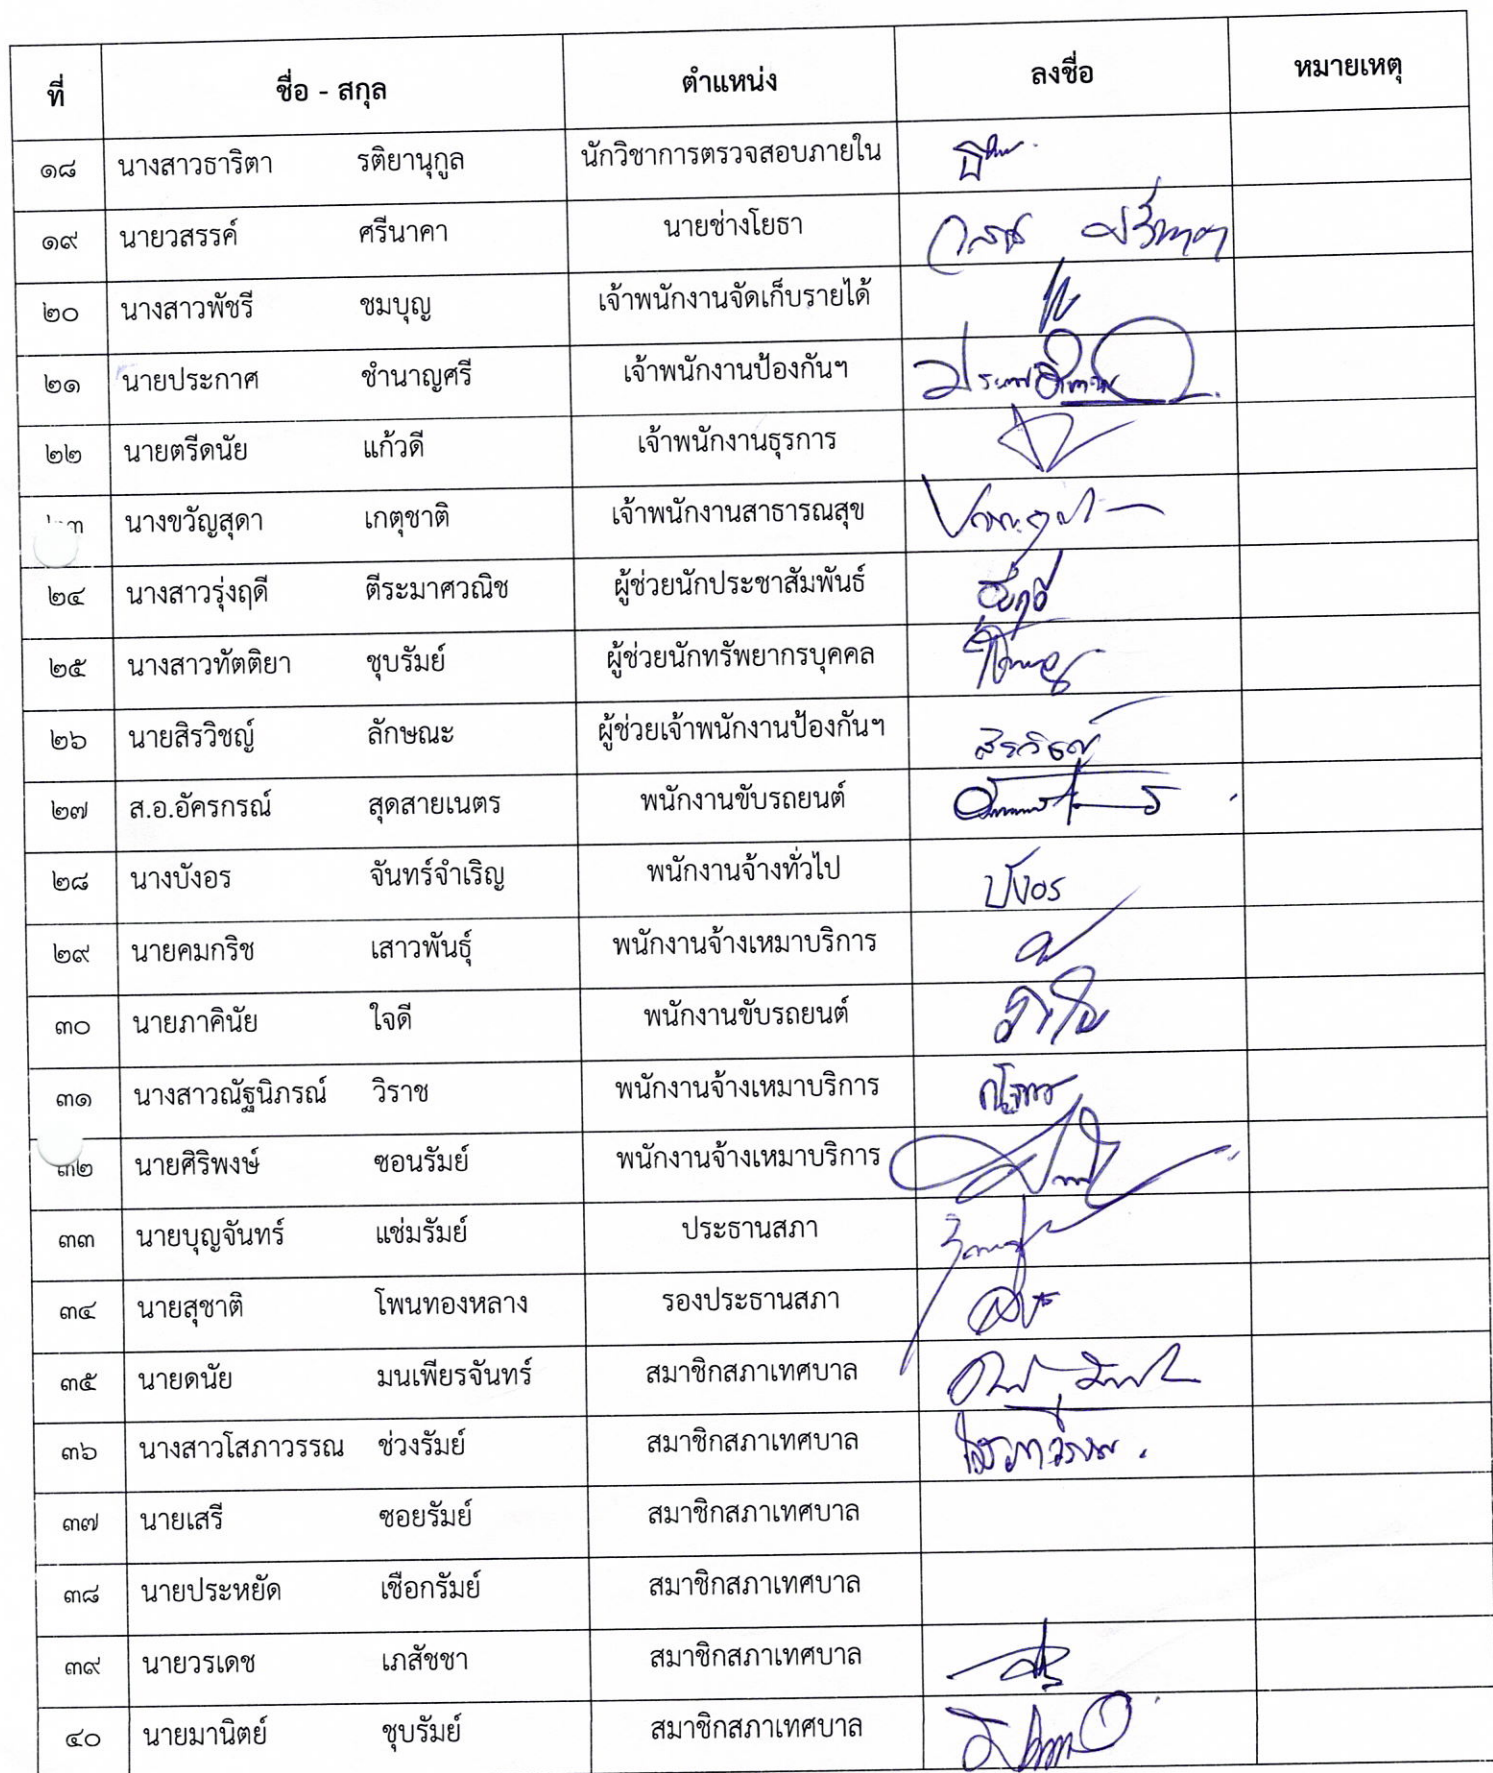 ที่ ชื่อ - สกุล ตำแหน่ง ลงชื่อ หมายเหตุ
๑๘ นางสาวธาริตา รติยานุกูล นักวิชาการตรวจสอบภายใน
๑๙ นายวสรรค์ ศรีนาคา นายช่างโยธา
๒๐ นางสาวพัชรี ชมบุญ เจ้าพนักงานจัดเก็บรายได้
๒๑ นายประกาศ ชำนาญศรี เจ้าพนักงานป้องกันฯ
๒๒ นายตรีดนัย แก้วดี เจ้าพนักงานธุรการ
๒๓ นางขวัญสุดา เกตุชาติ เจ้าพนักงานสาธารณสุข
๒๔ นางสาวรุ่งฤดี ตีระมาศวณิช ผู้ช่วยนักประชาสัมพันธ์
๒๕ นางสาวทัตติยา ชุบรัมย์ ผู้ช่วยนักทรัพยากรบุคคล
๒๖ นายสิรวิชญ์ ลักษณะ ผู้ช่วยเจ้าพนักงานป้องกันฯ สิรวิชญ์
๒๗ ส.อ.อัครกรณ์ สุดสายเนตร พนักงานขับรถยนต์
๒๘ นางบังอร จันทร์จำเริญ พนักงานจ้างทั่วไป บังอร
๒๙ นายคมกริช เสาวพันธุ์ พนักงานจ้างเหมาบริการ
๓๐ นายภาคินัย ใจดี พนักงานขับรถยนต์
๓๑ นางสาวณัฐนิภรณ์ วิราช พนักงานจ้างเหมาบริการ
๓๒ นายศิริพงษ์ ซอนรัมย์ พนักงานจ้างเหมาบริการ
๓๓ นายบุญจันทร์ แช่มรัมย์ ประธานสภา
๓๔ นายสุชาติ โพนทองหลาง รองประธานสภา
๓๕ นายดนัย มนเพียรจันทร์ สมาชิกสภาเทศบาล
๓๖ นางสาวโสภาวรรณ ช่วงรัมย์ สมาชิกสภาเทศบาล โสภาวรรณ
๓๗ นายเสรี ซอยรัมย์ สมาชิกสภาเทศบาล
๓๘ นายประหยัด เชือกรัมย์ สมาชิกสภาเทศบาล
๓๙ นายวรเดช เภสัชชา สมาชิกสภาเทศบาล
๔๐ นายมานิตย์ ชุบรัมย์ สมาชิกสภาเทศบาล